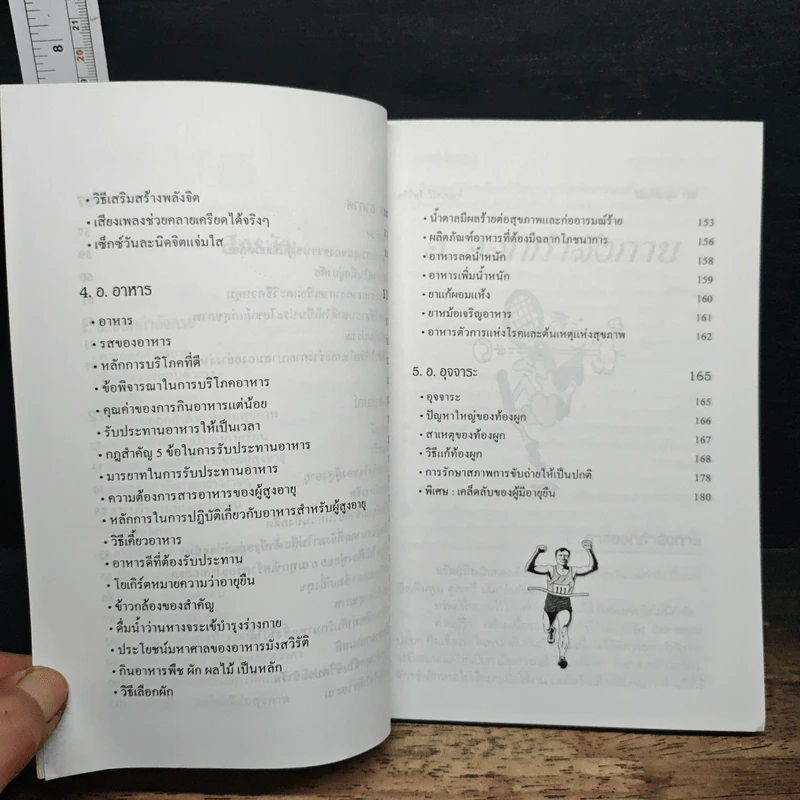 8
20
21
• วิธีเสริมสร้างพลังจิต
• เสียงเพลงช่วยคลายเครียดได้จริงๆ
• เซ็กซ์วันละนิดจิตแจ่มใส
4. อ. อาหาร
• อาหาร
• รสของอาหาร
• หลักการบริโภคที่ดี
• ข้อพิจารณาในการบริโภคอาหาร
• คุณค่าของการกินอาหารแต่น้อย
• รับประทานอาหารให้เป็นเวลา
• กฎสำคัญ 5 ข้อในการรับประทานอาหาร
• มารยาทในการรับประทานอาหาร
• ความต้องการสารอาหารของผู้สูงอายุ
• หลักการในการปฏิบัติเกี่ยวกับอาหารสำหรับผู้สูงอายุ
• วิธีเคี้ยวอาหาร
• อาหารดีที่ต้องรับประทาน
• โยเกิร์ตหมายความว่าอายุยืน
• ข้าวกล้องของสำคัญ
• ดื่มน้ำว่านหางจระเข้บำรุงร่างกาย
• ประโยชน์มหาศาลของอาหารมังสวิรัติ
• กินอาหารพืช ผัก ผลไม้ เป็นหลัก
• วิธีเลือกผัก
• น้ำตาลมีผลร้ายต่อสุขภาพและก่ออารมณ์ร้าย 153
• ผลิตภัณฑ์อาหารที่ต้องมีฉลากโภชนาการ 156
• อาหารลดน้ำหนัก 158
• อาหารเพิ่มน้ำหนัก 159
• ยาแก้ผอมแห้ง 160
• ยาหม้อเจริญอาหาร 161
• อาหารตัวการแห่งโรคและต้นเหตุแห่งสุขภาพ 162
5. อ. อุจจาระ 165
• อุจจาระ 165
• ปัญหาใหญ่ของท้องผูก 166
• สาเหตุของท้องผูก 167
• วิธีแก้ท้องผูก 168
• การรักษาสภาพการขับถ่ายให้เป็นปกติ 178
• พิเศษ : เคล็ดลับของผู้มีอายุยืน 180
111